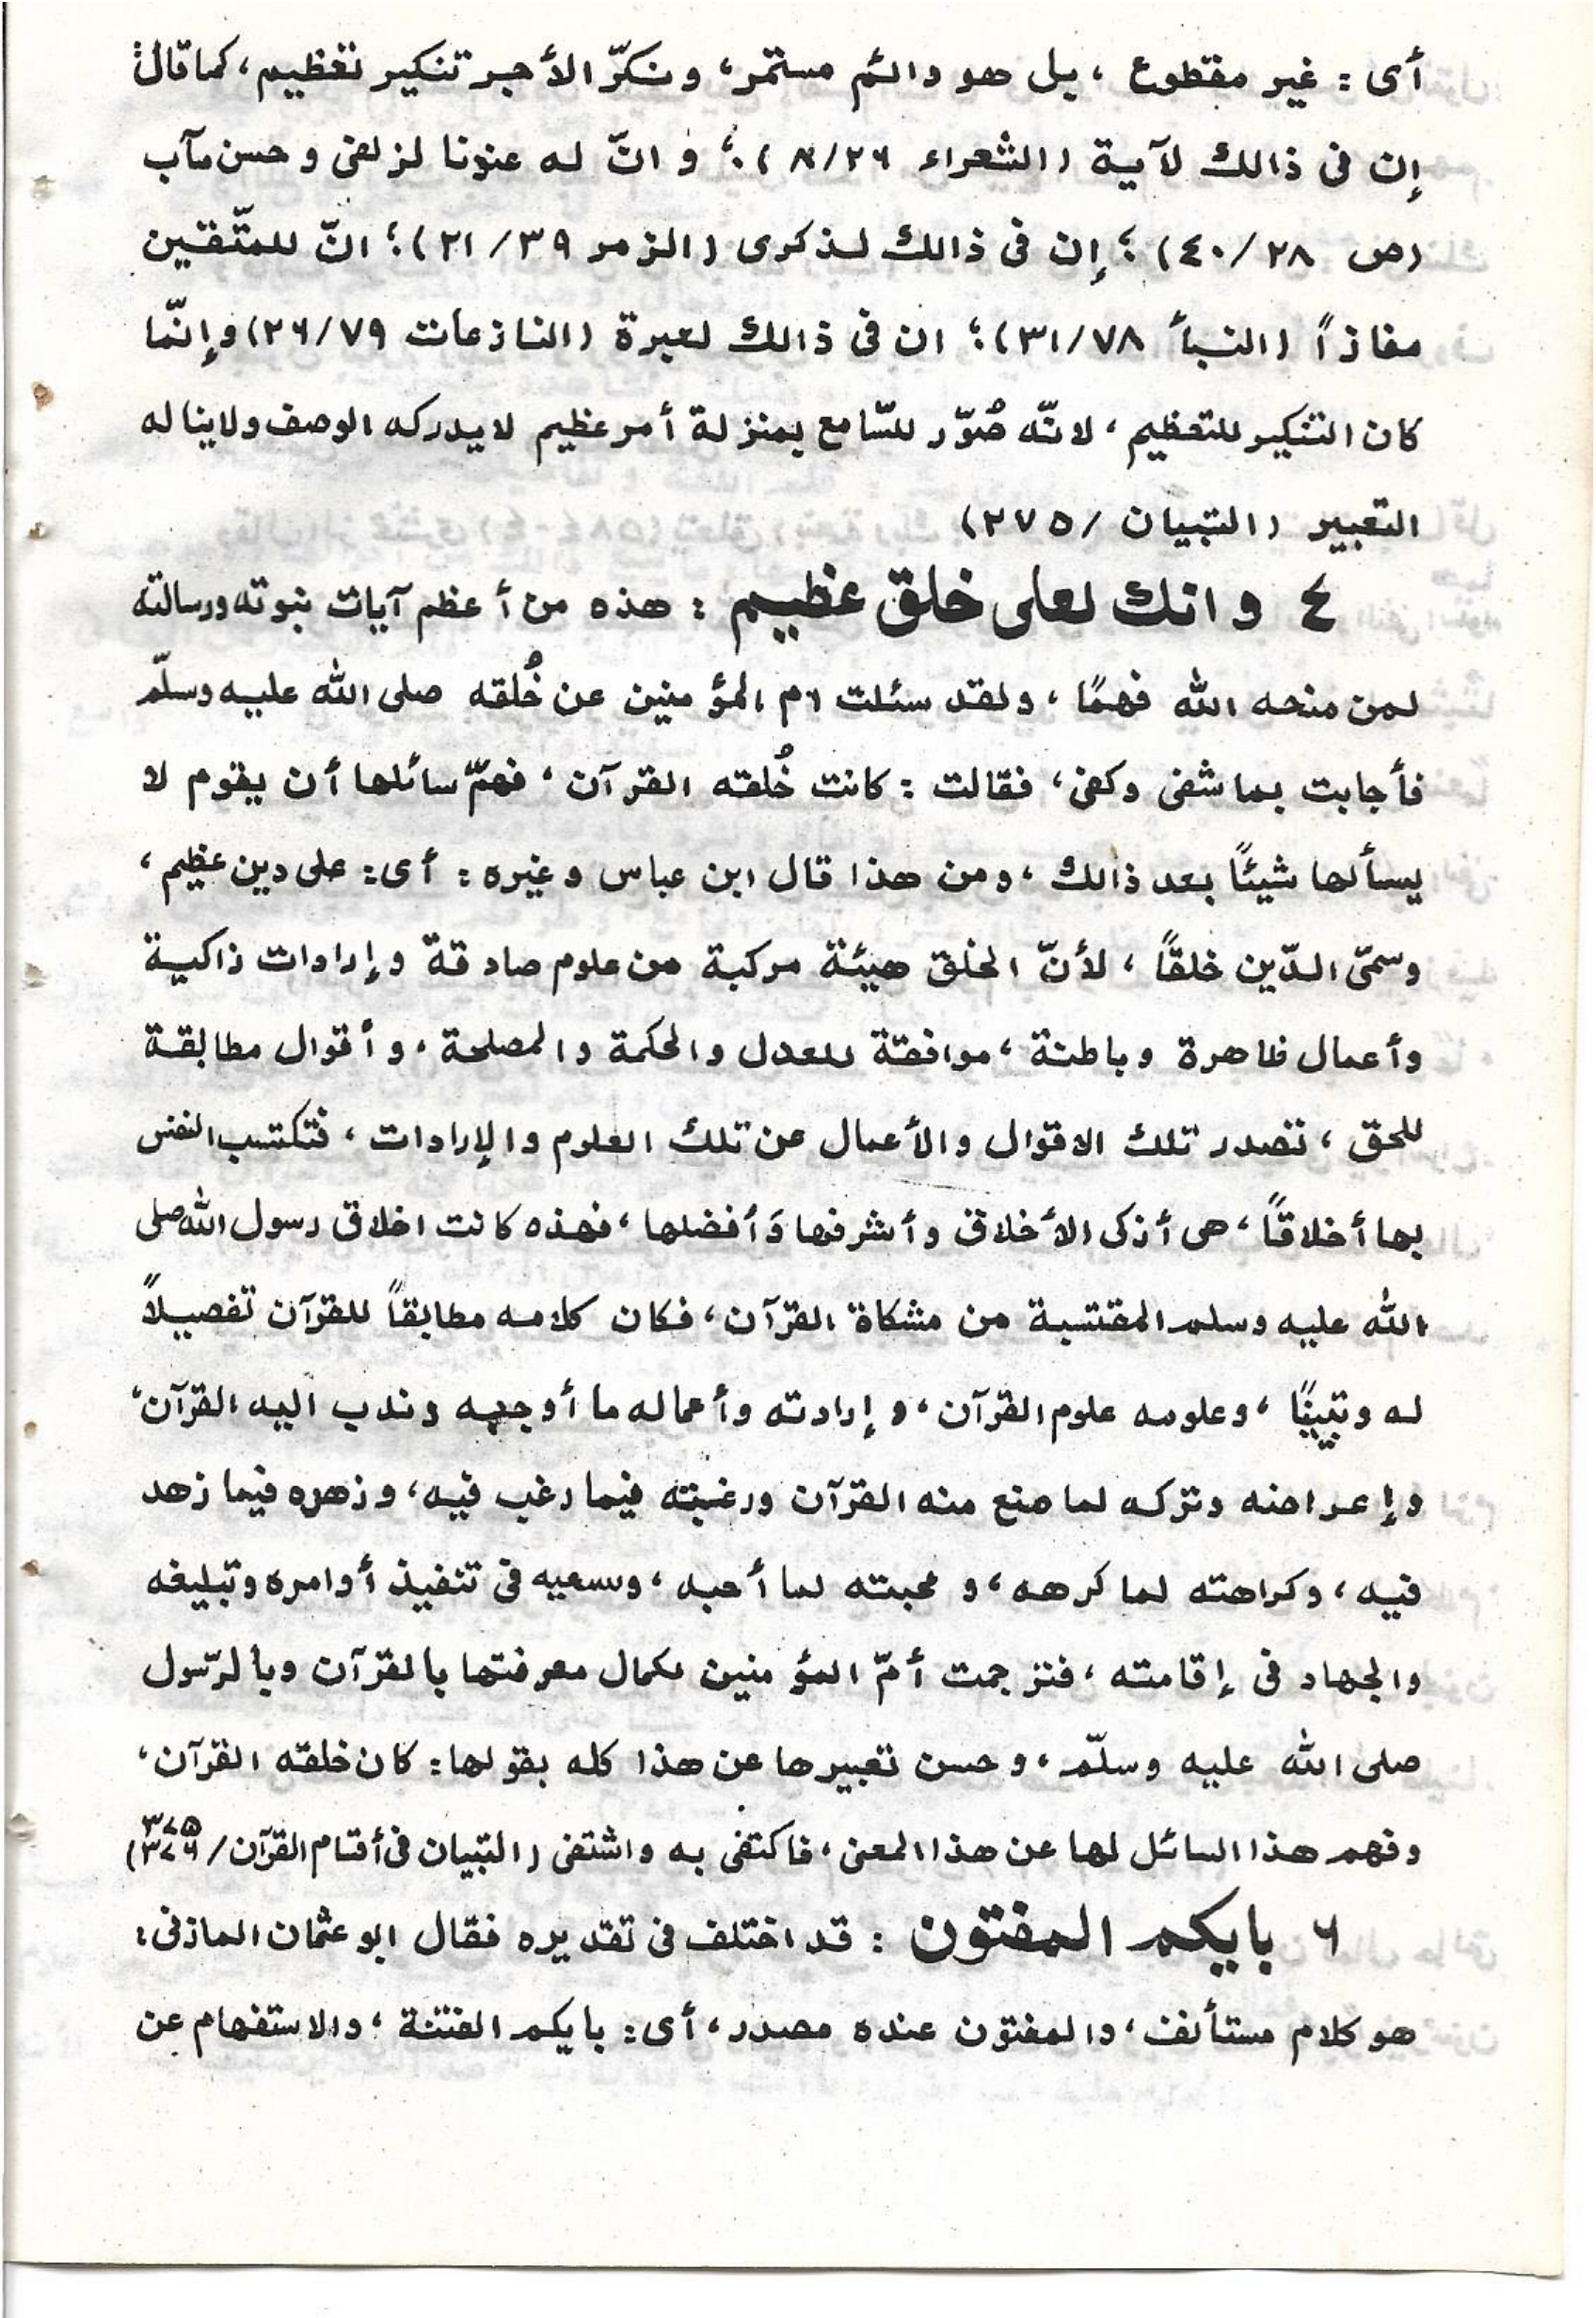 أى : غير مقطوع ، بل هو دائم مستمر ، ونكرّ الأجر تنكير تعظيم ، كما قال :
إن فى ذالك لآية (الشعراء ٨/٢٦) ؛ و انّ له عندنا لزلفى و حسن مآب
(ص ٤٠/٢٨) ؛ إن فى ذالك لذكرى (الزمر ٣٩/ ٢١) ؛ انّ للمتّقين
مفازاً (النبأ ٣١/٧٨) ؛ ان فى ذالك لعبرة (النازعات ٢٦/٧٩) وإنّما
كان التنكير للتعظيم ، لانّه صُوّر للسّامع بمنزلة أمر عظيم لا يدركه الوصف ولا يناله
التعبير (التبيان /٢٧٥)
٤ وانك لعلى خلق عظيم : هذه من أعظم آيات نبوته ورسالته
لمن منحه الله فهمًا ، ولقد سئلت ام المؤمنين عن خُلقه صلى الله عليه وسلّم
فأجابت بما شفى وكفى ، فقالت : كانت خُلقه القرآن ، فهمّ سائلها أن يقوم لا
يسألها شيئًا بعد ذالك ، ومن هذا قال ابن عباس وغيره : أى : على دين عظيم ،
وسمّى الدّين خلقاً ، لأنّ الخلق هيئة مركبة من علوم صادقة وإرادات زاكية
وأعمال ظاهرة وباطنة ، موافقة للعدل والحكمة والمصلحة ، وأقوال مطابقة
للحق ، تصدر تلك الاقوال والأعمال عن تلك العلوم والإرادات ، فتكتسب النفس
بها أخلاقاً ، هى أزكى الأخلاق وأشرفها وَأفضلها ، فهذه كانت اخلاق رسول الله صلى
الله عليه وسلم المقتسبة من مشكاة القرآن ، فكان كلامه مطابقاً للقرآن تفصيلاً
له وتبيينًا ، وعلومه علوم القرآن ، و إرادته وأعماله ما أوجبه وندب اليه القرآن ،
وإعراضه وتركه لما منع منه القرآن ورغبته فيما رغب فيه ، وزهده فيما زهد
فيه ، وكراهته لما كرهه ، و محبته لما أحبه ، وسعيه فى تنفيذ أوامره وتبليغه
والجهاد فى إقامته ، فترجمت أمّ المؤمنين لكمال معرفتها بالقرآن وبالرّسول
صلى الله عليه وسلّم ، وحسن تعبيرها عن هذا كله بقولها : كان خلقه القرآن ،
وفهم هذا السائل لها عن هذا المعنى ، فاكتفى به واشتفى (التبيان فى أقسام القرآن/ ٣٧٥ ٣٧٦)
٦ بايكم المفتون : قد اختلف فى تقديره فقال ابو عثمان المازنى :
هو كلام مستأنف ، والمفتون عنده مصدر ، أى : بايكم الفتنة ، والاستفهام عن